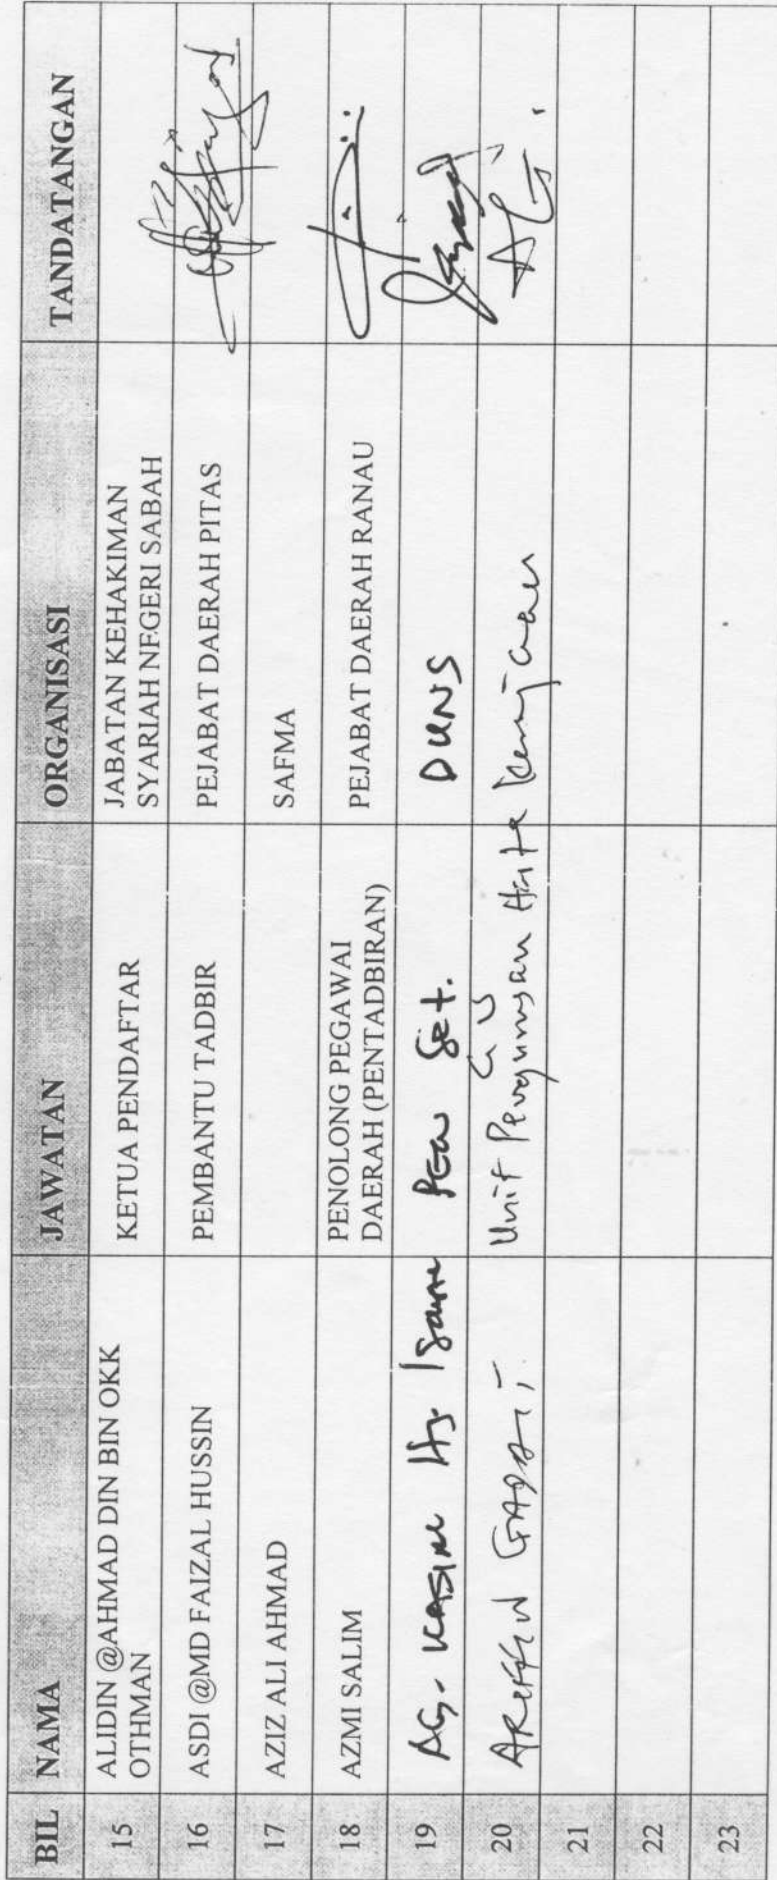 BIL NAMA JAWATAN ORGANISASI TANDATANGAN
15 ALIDIN @AHMAD DIN BIN OKK OTHMAN KETUA PENDAFTAR JABATAN KEHAKIMAN SYARIAH NEGERI SABAH
16 ASDI @MD FAIZAL HUSSIN PEMBANTU TADBIR PEJABAT DAERAH PITAS
17 AZIZ ALI AHMAD SAFMA
18 AZMI SALIM PENOLONG PEGAWAI DAERAH (PENTADBIRAN) PEJABAT DAERAH RANAU
19 AG. KASIM Hj. PEW Set. DUNS
20 ARIFFIN Unit Pengurusan Harta Kerajaan
21
22
23